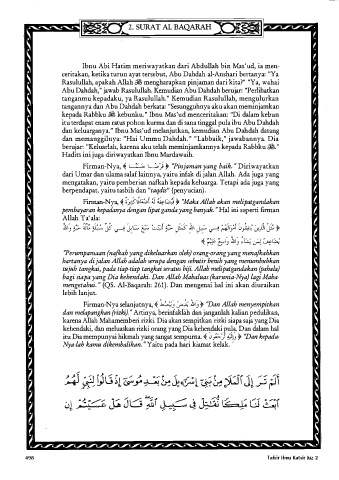 2. SURAT AL BAQARAH
Ibnu Abi Hatim meriwayatkan dari Abdullah bin Mas'ud, ia men-
ceritakan, ketika turun ayat tersebut, Abu Dahdah al-Anshari bertanya: "Ya
Rasulullah, apakah Allah ﷻ mengharapkan pinjaman dari kita?" "Ya, wahai
Abu Dahdah," jawab Rasulullah. Kemudian Abu Dahdah berujar: "Perlihatkan
tanganmu kepadaku, ya Rasulullah." Kemudian Rasulullah, mengulurkan
tangannya dan Abu Dahdah berkata: "Sesungguhnya aku akan meminjamkan
kepada Rabbku ﷻ kebunku." Ibnu Mas'ud menceritakan: "Di dalam kebun
itu terdapat enam ratus pohon kurma dan di sana tinggal pula ibu Abu Dahdah
dan keluarganya." Ibnu Mas'ud melanjutkan, kemudian Abu Dahdah datang
dan memanggilnya: "Hai Ummu Dahdah." "Labbaik," jawabannya. Dia
berujar: "Keluarlah, karena aku telah meminjamkannya kepada Rabbku ﷻ."
Hadits ini juga diriwayatkan Ibnu Mardawaih.
Firman-Nya, ﴿ قَرْضًا حَسَنًا ﴾ "Pinjaman yang baik." Diriwayatkan
dari Umar dan ulama salaf lainnya, yaitu infak di jalan Allah. Ada juga yang
mengatakan, yaitu pemberian nafkah kepada keluarga. Tetapi ada juga yang
berpendapat, yaitu tasbih dan "taqdis" (penyucian).
Firman-Nya, ﴿ فَيُضَاعِفَهُ لَهُ أَضْعَافًا كَثِيرَةً ﴾ "Maka Allah akan melipatgandakan
pembayaran kepadanya dengan lipat ganda yang banyak." Hal ini seperti firman
Allah Ta'ala:
﴿ مَّثَلُ الَّذِينَ يُنفِقُونَ أَمْوَالَهُمْ فِي سَبِيلِ اللَّهِ كَمَثَلِ حَبَّةٍ أَنبَتَتْ سَبْعَ سَنَابِلَ فِي كُلِّ سُنبُلَةٍ مِّائَةُ حَبَّةٍ وَاللَّهُ
يُضَاعِفُ لِمَن يَشَاءُ وَاللَّهُ وَاسِعٌ عَلِيمٌ ﴾
"Perumpamaan (nafkah yang dikeluarkan oleh) orang-orang yang menafkahkan
hartanya di jalan Allah adalah serupa dengan sebutir benih yang menumbuhkan
tujuh tangkai, pada tiap-tiap tangkai seratus biji. Allah melipatgandakan (pahala)
bagi siapa yang Dia kehendaki. Dan Allah Mahaluas (karunia-Nya) lagi Maha-
mengetahui." (QS. Al-Baqarah: 261). Dan mengenai hal ini akan diuraikan
lebih lanjut.
Firman-Nya selanjutnya, ﴿ وَاللَّهُ يَقْبِضُ وَيَبْسُطُ ﴾ "Dan Allah menyempitkan
dan melapangkan (rizki)." Artinya, berinfaklah dan janganlah kalian pedulikan,
karena Allah Mahamemberi rizki. Dia akan sempitkan rizki siapa saja yang Dia
kehendaki, dan meluaskan rizki orang yang Dia kehendaki pula. Dan dalam hal
itu Dia mempunyai hikmah yang sangat sempurna. ﴿ وَإِلَيْهِ تُرْجَعُونَ ﴾ "Dan kepada-
Nya-lah kamu dikembalikan." Yaitu pada hari kiamat kelak.
أَلَمْ تَرَ إِلَى ٱلْمَلَإِ مِنۢ بَنِىٓ إِسْرَٰٓءِيلَ مِنۢ بَعْدِ مُوسَىٰٓ إِذْ قَالُوا۟ لِنَبِىٍّ لَّهُمُ
ٱبْعَثْ لَنَا مَلِكًا نُّقَٰتِلْ فِى سَبِيلِ ٱللَّهِ قَالَ هَلْ عَسَيْتُمْ إِن
498
Tafsir Ibnu Katsir Juz 2